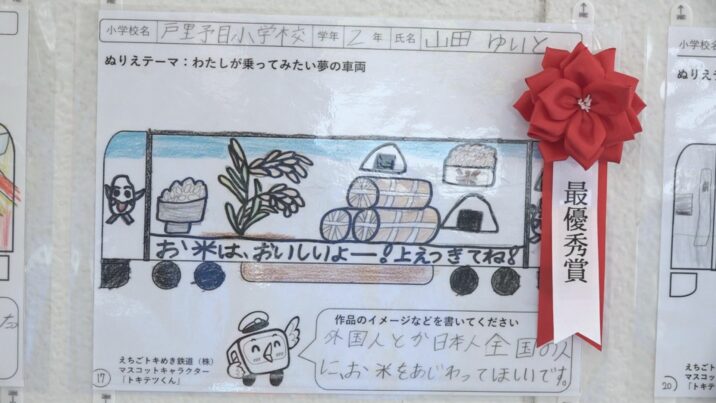 小学校名 戸野目小学校 学年 2年 氏名 山田 ゆいと
ぬりえテーマ：わたしが乗ってみたい夢の車両
お米は、おいしいよー!上えつきてね!
作品のイメージなどを書いてください
外国人とか日本人全国の人
に、お米をあじわってほしいです。
えちごトキめき鉄道（株）
マスコットキャラクター
「トキテツくん」
17
最優秀賞
小学校名
ぬりえテ
20